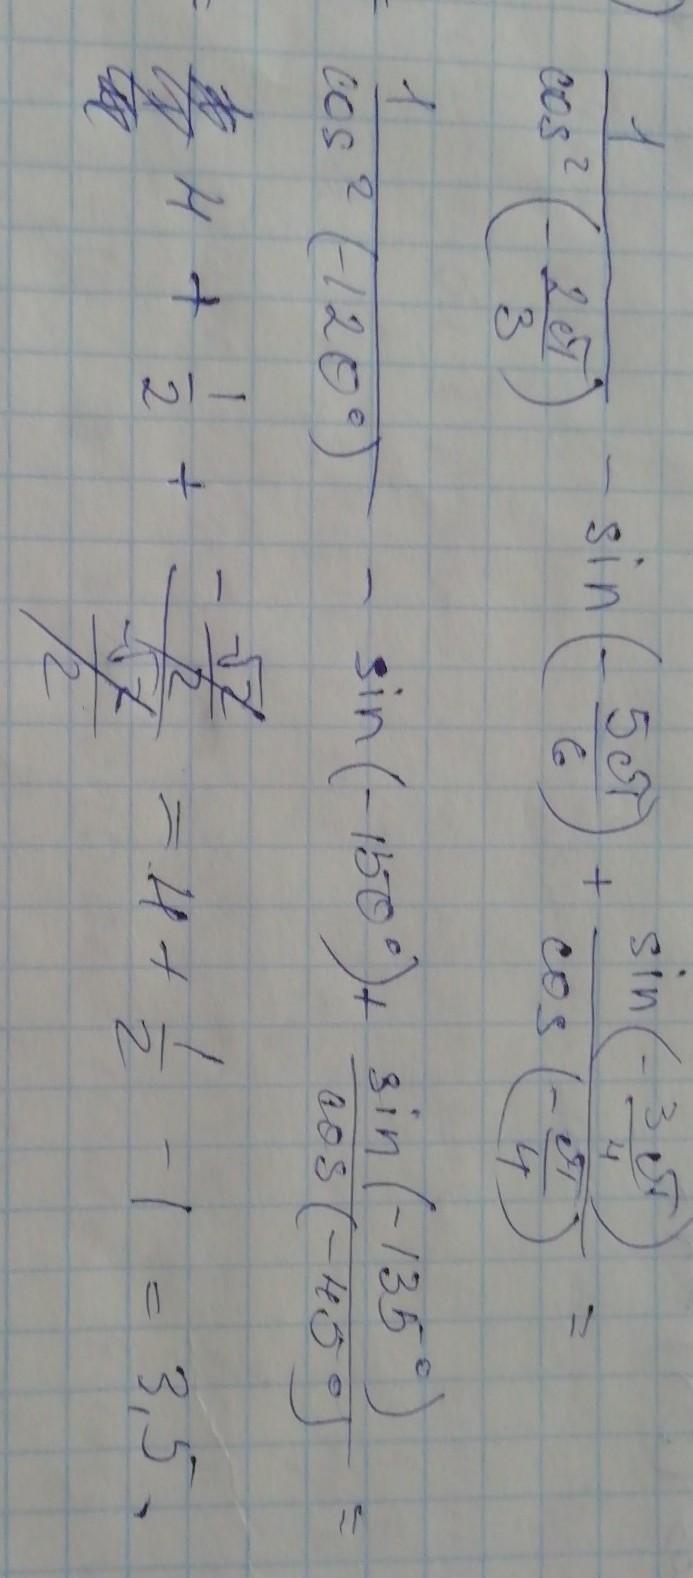 1/cos²(-2π/3) - sin(-5π/6) + sin(-3π/4)/cos(-π/4) =
= 1/cos²(-120°) - sin(-150°) + sin(-135°)/cos(-45°) =
= 4 + 1/2 + (-√2/2)/(√2/2) = 4 + 1/2 - 1 = 3,5.